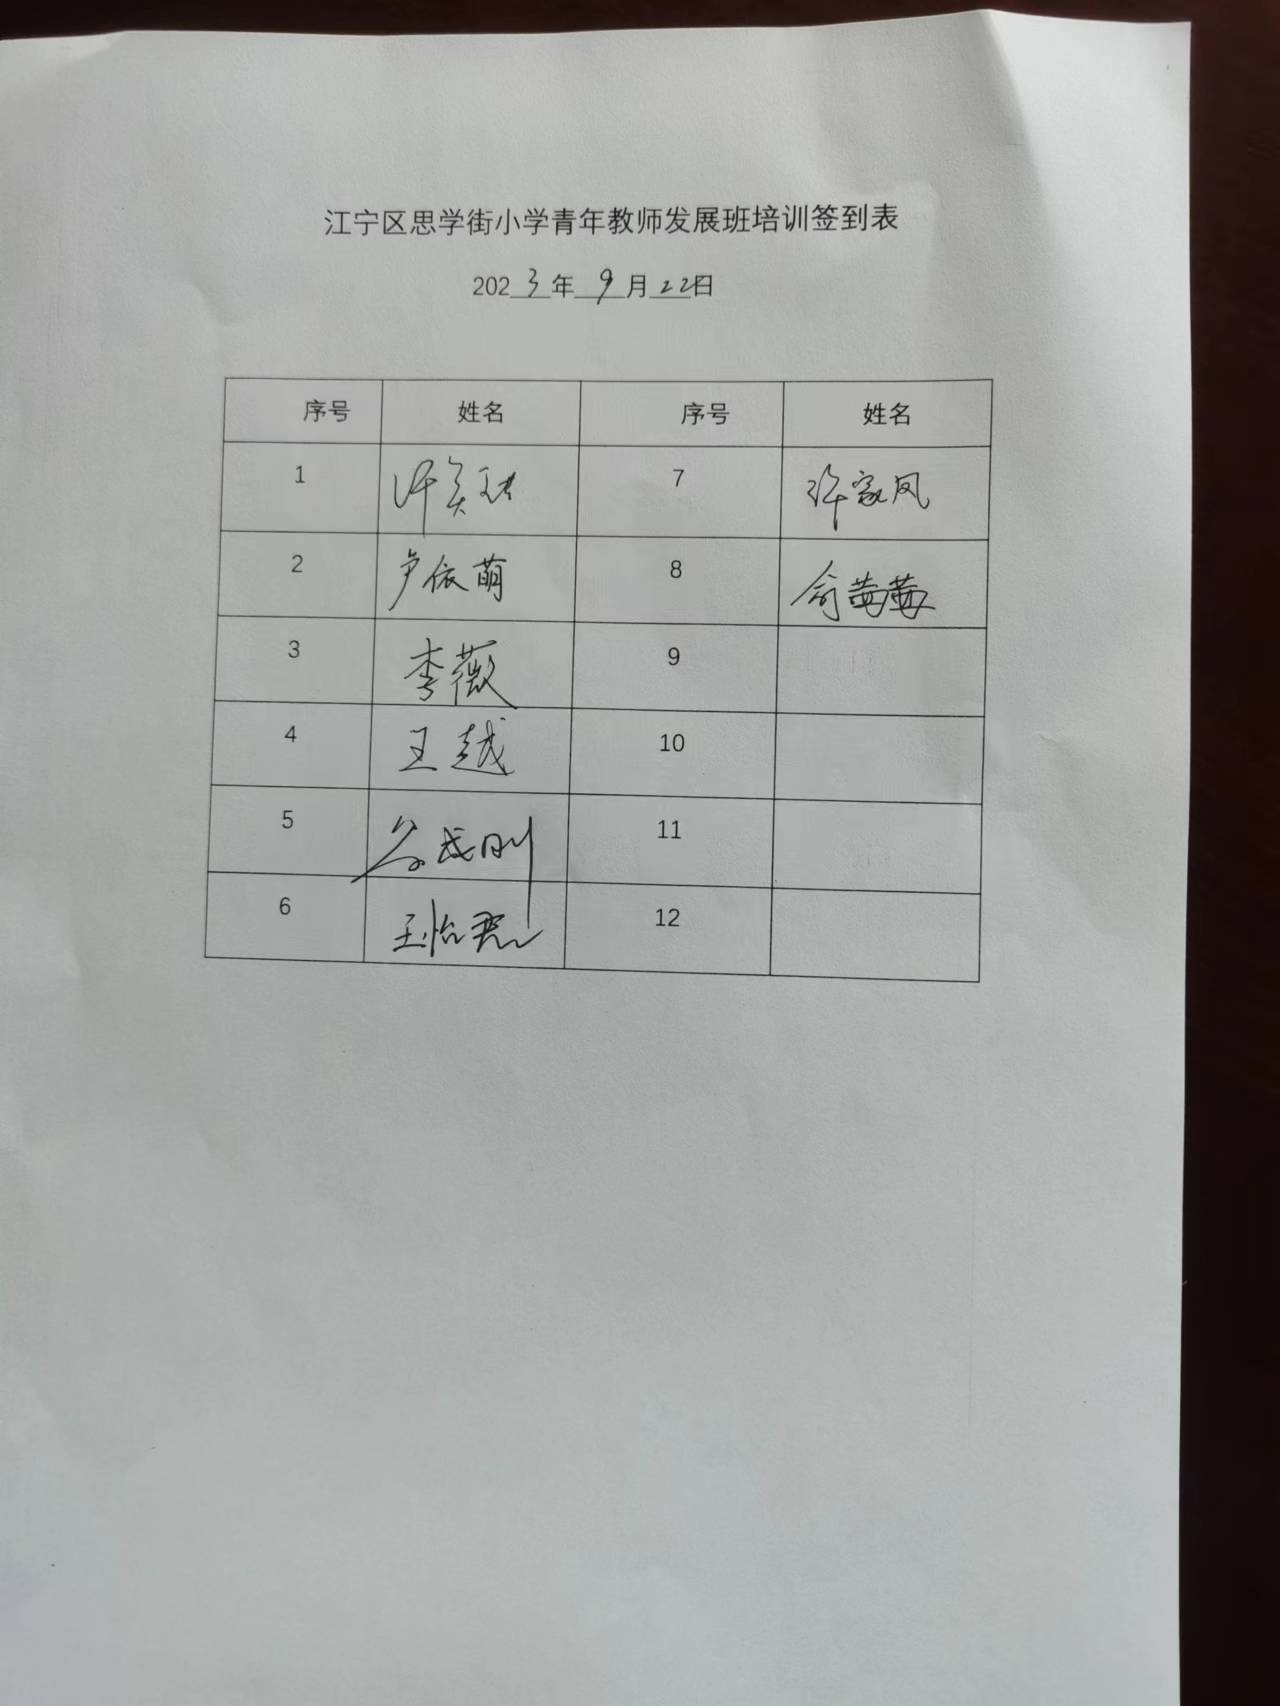 江宁区思学街小学青年教师发展班培训签到表
2023年9月22日
序号 姓名 序号 姓名
1 7 许家凤
2 尹依萌 8 俞茜茜
3 李薇 9
4 王越 10
5 11
6 王怡君 12